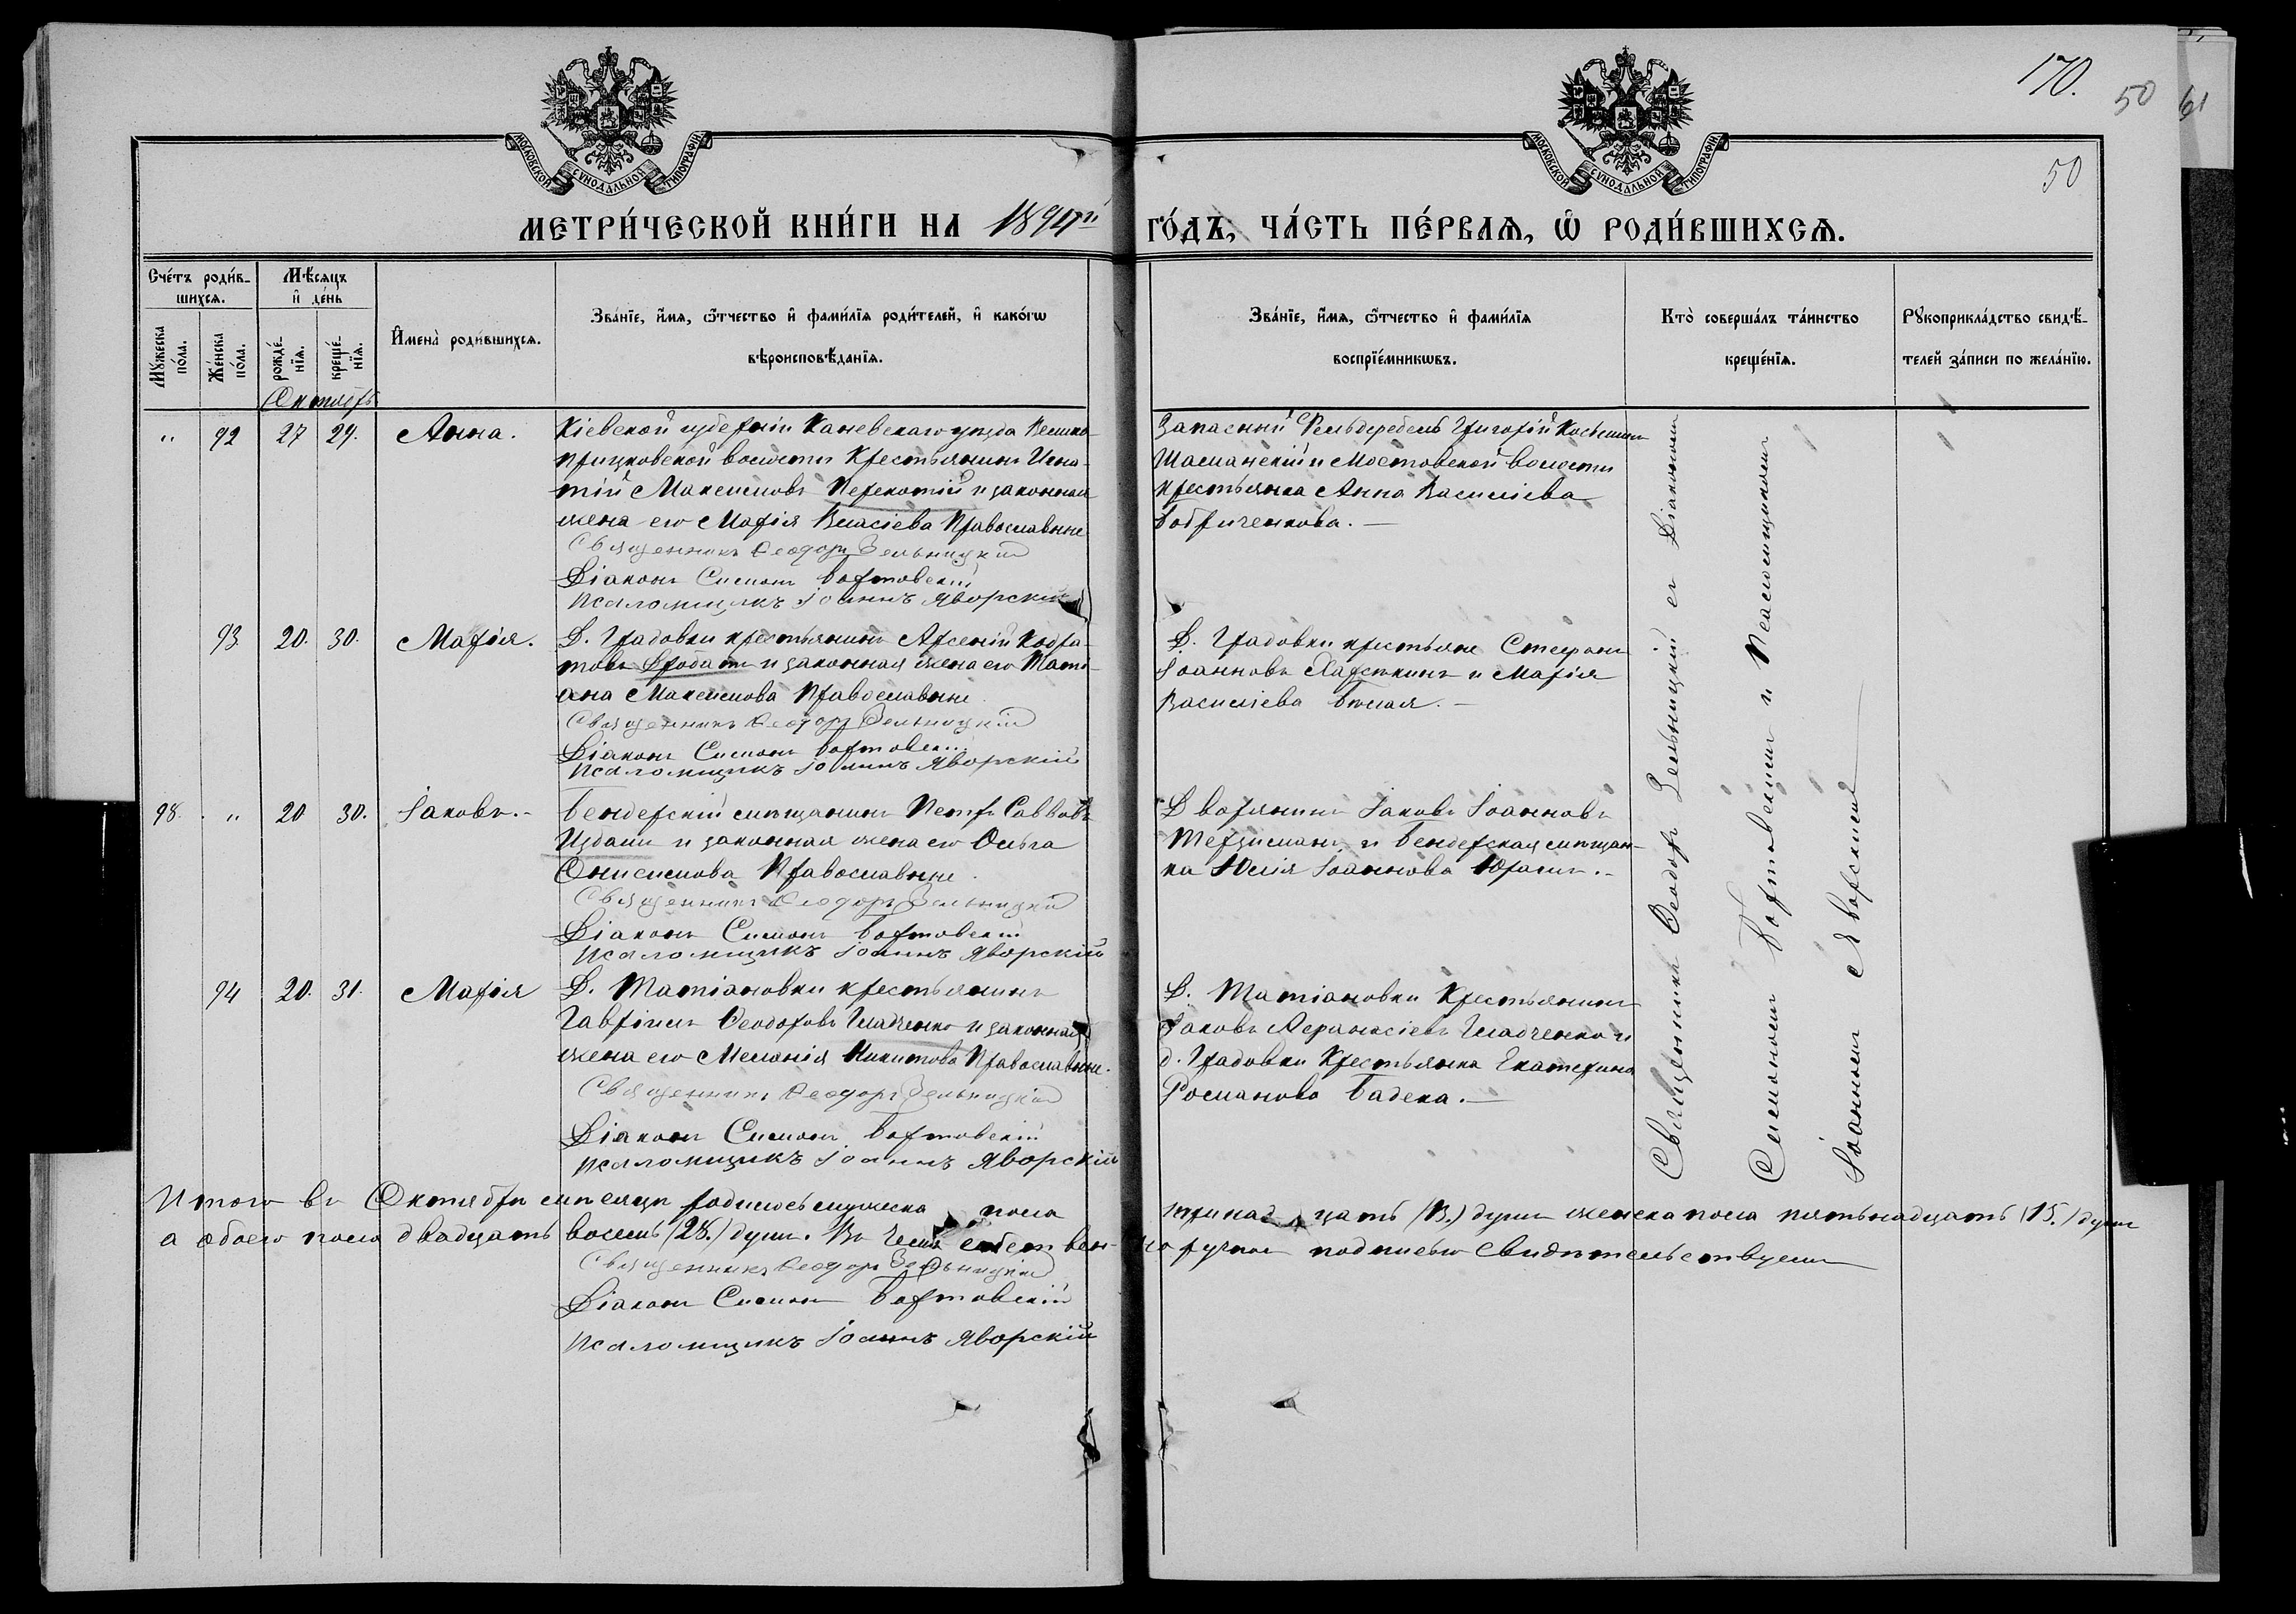 170.
50
61
50
МОСКОВСКОЙ СУНОДАЛЬНОЙ ТИПОГРАФІИ
МОСКОВСКОЙ СУНОДАЛЬНОЙ ТИПОГРАФІИ
МЕТРИ́ЧЕСКОЙ КНИ́ГИ НА 1894й ГО́ДЪ, ЧА́СТЬ ПЕ́РВАѦ, Ѡ РОДИ́ВШИХСѦ.
Сче́тъ роди́вшихсѧ.
Мꙋ́жеска по́ла.
Же́нска по́ла.
Мѣ́сяцъ и҆ де́нь
рожде́нїѧ.
креще́нїѧ.
И҆мена̀ роди́вшихсѧ.
Зва́нїе, и҆́мѧ, ѻ҆́тчество и҆ фами́лїѧ роди́телей, и҆ како́гѡ вѣроисповѣ́данїѧ.
Зва́нїе, и҆́мѧ, ѻ҆́тчество и҆ фами́лїѧ воспрїе́мникѡвъ.
Кто̀ соверша́лъ та́инство креще́нїѧ.
Рꙋкоприкла́дство свидѣ́телей за́писи по жела́нїю.
Октябрь
" 92 27 29. Анна.
Кіевской губерніи Каневскаго уѣзда Велико-
прицковской волости крестьянинъ Игна-
тій Максимовъ Перекотій и законная
жена его Марія Власіева Православные
Священникъ Ѳеодоръ Зельницкій
Діаконъ Симонъ Бортовскій
Псаломщикъ Іоаннъ Яворскій
Запасный Фельдфебель Григорій Косьмин
и Мостовской волости
крестьянка Анна Василіева
Бобриченкова.
93 20. 30. Марія.
Д. Градовки крестьянинъ Арсеній Кодра-
товъ и законная жена его Тати-
ана Максимова Православные
Священникъ Ѳеодоръ Зельницкій
Діаконъ Симонъ Бортовскій
Псаломщикъ Іоаннъ Яворскій
Д. Градовки крестьяне Стефанъ
Іоанновъ и Марія
Василіева Бѣлая.
98. " 20 30. Іаковъ.
Бендерскій мѣщанинъ Петръ Саввовъ
и законная жена его Ольга
Онисимова Православные.
Священникъ Ѳеодоръ Зельницкій
Діаконъ Симонъ Бортовскій
Псаломщикъ Іоаннъ Яворскій
Дворянинъ Іаковъ Іоанновъ
Терзиманъ и Бендерская мѣщан-
ка Юлія Іоаннова
94 20. 31. Марія
Д. Татіановки крестьянинъ
Гавріилъ Ѳеодоровъ Гладченко и законная
жена его Меланія Никитова Православные.
Священникъ Ѳеодоръ Зельницкій
Діаконъ Симонъ Бортовскій
Псаломщикъ Іоаннъ Яворскій
Д. Татіановки Крестьянинъ
Іаковъ Аѳанасіевъ Гладченко и
д. Градовки Крестьянка Екатерина
Романова Бадека.
Священникъ Ѳеодоръ Зельницкій съ Діакономъ
Симономъ Бортовскимъ и Псаломщикомъ
Іоанномъ Яворскимъ
Итого въ Октябрѣ мѣсяцѣ родилось мужеска пола тринадцать (13.) душъ женска пола пятьнадцать (15.) душъ
а обоего пола двадцать восемь (28.) душъ. Въ чемъ собственноручною подписью свидѣтельствуемъ
Священникъ Ѳеодоръ Зельницкій
Діаконъ Симонъ Бортовскій
Псаломщикъ Іоаннъ Яворскій